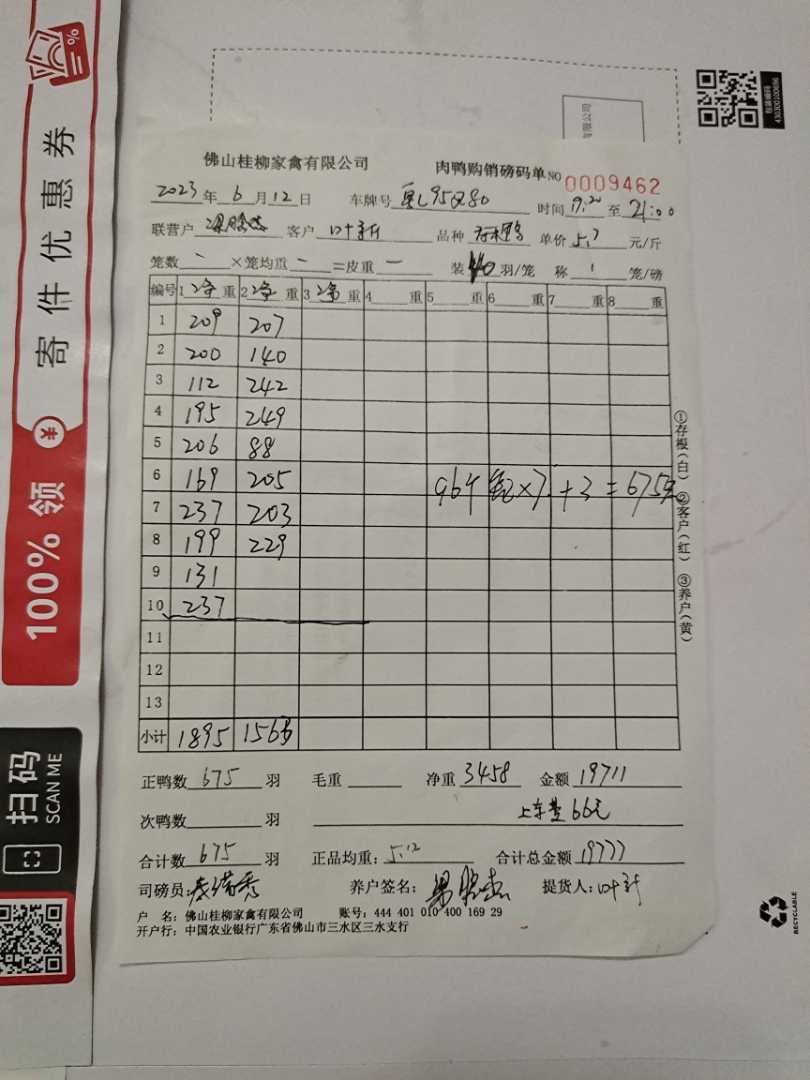 寄件优惠券
100% 领
扫码
SCAN ME
包装编码
430300100696
有限公司
佛山桂柳家禽有限公司 肉鸭购销磅码单 NO 0009462
2023年6月12日 车牌号 95Q80 时间 至 21:00
联营户 客户 叶 品种 单价 5.7 元/斤
笼数 - ×笼均重 - =皮重 - 装 羽/笼 称 1 笼/磅
编号 1 净 重 2 净 重 3 净 重 4 重 5 重 6 重 7 重 8 重
1 209 207
2 200 140
3 112 242
4 195 249
5 206 88
6 169 205
7 237 203
8 199 229
9 131
10 237
11
12
13
小计 1895 1563
96个 ×7 +3 = 675
①存根(白) ②客户(红) ③养户(黄)
正鸭数 675 羽 毛重 净重 3458 金额 19711
次鸭数 羽 上车 66元
合计数 675 羽 正品均重: 5.12 合计总金额 19777
司磅员: 养户签名: 提货人: 叶
户 名: 佛山桂柳家禽有限公司 账号: 444 401 010 400 169 29
开户行: 中国农业银行广东省佛山市三水区三水支行
RECYCLABLE